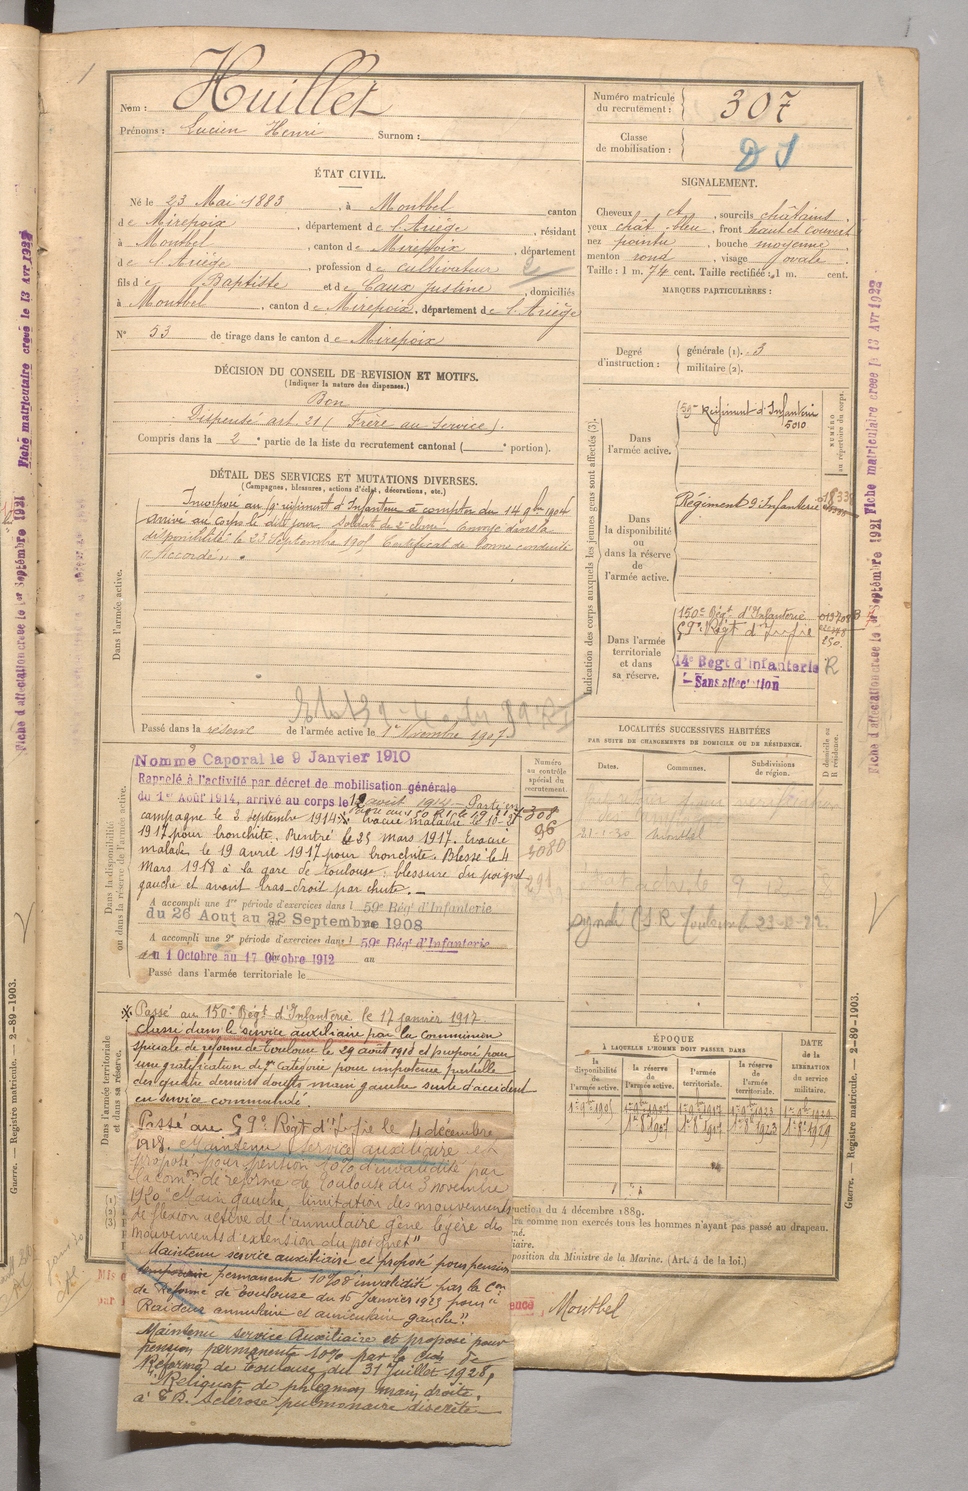 Nom : Huillet
Prénoms : Lucien Henri Surnom :
Numéro matricule du recrutement : 307
Classe de mobilisation :
ÉTAT CIVIL.
Né le 23 Mai 1883, à Montbel canton
de Mirepoix, département de l'Ariège, résidant
à Montbel, canton de Mirepoix, département
de l'Ariège, profession de cultivateur
fils de Baptiste et de Caux Justine, domiciliés
à Montbel, canton de Mirepoix, département de l'Ariège
N° 53 de tirage dans le canton de Mirepoix
SIGNALEMENT.
Cheveux et, sourcils châtains,
yeux chât. bleu, front haut et couvert
nez pointu, bouche moyenne
menton rond, visage ovale
Taille : 1 m. 74 cent. Taille rectifiée : 1 m. cent.
MARQUES PARTICULIÈRES :
Degré d'instruction : générale (1). 3
militaire (2).
DÉCISION DU CONSEIL DE REVISION ET MOTIFS.
(Indiquer la nature des dispenses.)
Bon
Dispensé art. 21 (Frère au Service).
Compris dans la 2e partie de la liste du recrutement cantonal ( e portion).
DÉTAIL DES SERVICES ET MUTATIONS DIVERSES.
(Campagnes, blessures, actions d'éclat, décorations, etc.)
Dans l'armée active.
Incorporé au régiment d'Infanterie à compter du 14 9bre 1904
Arrivé au corps le dit jour. Soldat de 2e classe. Envoyé dans la
disponibilité le 23 Septembre 1905 Certificat de bonne conduite
"Accordé".
Passé dans la réserve de l'armée active le 1er Novembre 1907
Indication des corps auxquels les jeunes gens sont affectés (3).
NUMÉRO au répertoire du corps.
Dans l'armée active.
59e Régiment d'Infanterie
5010
Dans la disponibilité ou dans la réserve de l'armée active.
Régiment d'Infanterie
Dans l'armée territoriale et dans sa réserve.
150e Régt d'Infanterie
59e Régt d'Infie
14e Régt d'Infanterie R
Sans affectation
LOCALITÉS SUCCESSIVES HABITÉES
PAR SUITE DE CHANGEMENTS DE DOMICILE OU DE RÉSIDENCE.
Dates. Communes. Subdivisions de région. D domicile ou R résidence.
21-1-30 Montbel
Dans la disponibilité ou dans la réserve de l'armée active.
Numéro au contrôle spécial du recrutement.
Nommé Caporal le 9 Janvier 1910
Rappelé à l'activité par décret de mobilisation générale
du 1er Août 1914, arrivé au corps le 12 août 1914 - Parti en
campagne le 3 septembre 1914 évacué malade le
1917 pour bronchite. Rentré le 25 mars 1917. Evacué
malade le 19 avril 1917 pour bronchite. Blessé le 4
Mars 1918 à la gare de Toulouse : blessure du poignet
gauche et avant bras droit par chute.
308
96
3080
A accompli une 1re période d'exercices dans l 59e Régt d'Infanterie
du 26 Aout au 22 Septembre 1908
A accompli une 2e période d'exercices dans l 59e Régt d'Infanterie
du 1 Octobre au 17 Octobre 1912 au
Passé dans l'armée territoriale le
Dans l'armée territoriale et dans sa réserve.
Passé au 150e Régt d'Infanterie le 17 janvier 1917
classé dans le service auxiliaire par la commission
spéciale de réforme de Toulouse le 29 août 1918 et proposé pour
une gratification de catégorie pour impotence partielle
des quatre derniers doigts main gauche suite d'accident
en service commandé.
Passé au 59e Régt d'Infie le 4 décembre
1918. Maintenu service auxiliaire et
proposé pour pension 10% d'invalidité par
la com de réforme de Toulouse du 3 novembre
1920 "Main gauche, limitation des mouvements
de flexion active de l'annulaire gêne légère des
mouvements d'extension du poignet"
Maintenu service auxiliaire et proposé pour pension
temporaire permanente 10% d'invalidité par la Con
de Réforme de Toulouse du 16 Janvier 1923 pour "
Raideur annulaire et auriculaire gauche".
Maintenu service Auxiliaire et proposé pour
pension permanente 10% par la Con de
Réforme de Toulouse du 31 Juillet 1928,
"Reliquat de phlegmon main droite.
Sclérose pulmonaire discrète
ÉPOQUE
À LAQUELLE L'HOMME DOIT PASSER DANS
la disponibilité de l'armée active. la réserve de l'armée active. l'armée territoriale. la réserve de l'armée territoriale.
DATE de la LIBÉRATION du service militaire.
uction du 4 décembre 1889.
dra comme non exercés tous les hommes n'ayant pas passé au drapeau.
iaire.
position du Ministre de la Marine. (Art. 4 de la loi.)
Montbel
Fiche d'affectation creee le 1er Septembre 1921 Fiche matriculaire creee le 13 Avr 1922
Fiche d'affectation creee le 1er Septembre 1921 Fiche matriculaire creee le 13 Avr 1922
Guerre. — Registre matricule. — 2-89-1903.
Guerre. — Registre matricule. — 2-89-1903.